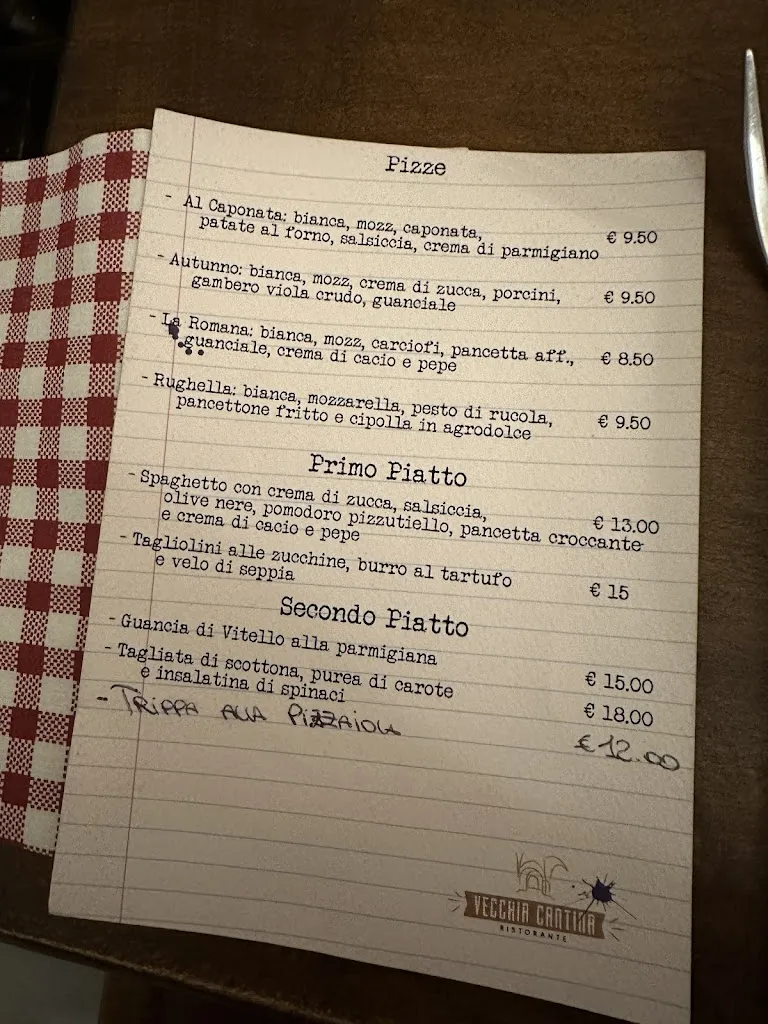 Pizze
- Al Caponata: bianca, mozz, caponata, € 9.50
patate al forno, salsiccia, crema di parmigiano
- Autunno: bianca, mozz, crema di zucca, porcini, € 9.50
gambero viola crudo, guanciale
- La Romana: bianca, mozz, carciofi, pancetta aff., € 8.50
guanciale, crema di cacio e pepe
- Rughella: bianca, mozzarella, pesto di rucola, € 9.50
pancettone fritto e cipolla in agrodolce
Primo Piatto
- Spaghetto con crema di zucca, salsiccia, € 13.00
olive nere, pomodoro pizzutiello, pancetta croccante
e crema di cacio e pepe
- Tagliolini alle zucchine, burro al tartufo € 15
e velo di seppia
Secondo Piatto
- Guancia di Vitello alla parmigiana € 15.00
- Tagliata di scottona, purea di carote € 18.00
e insalatina di spinaci
- TRIPPA ALLA PIZZAIOLA € 12.00
VECCHIA CANTINA
RISTORANTE